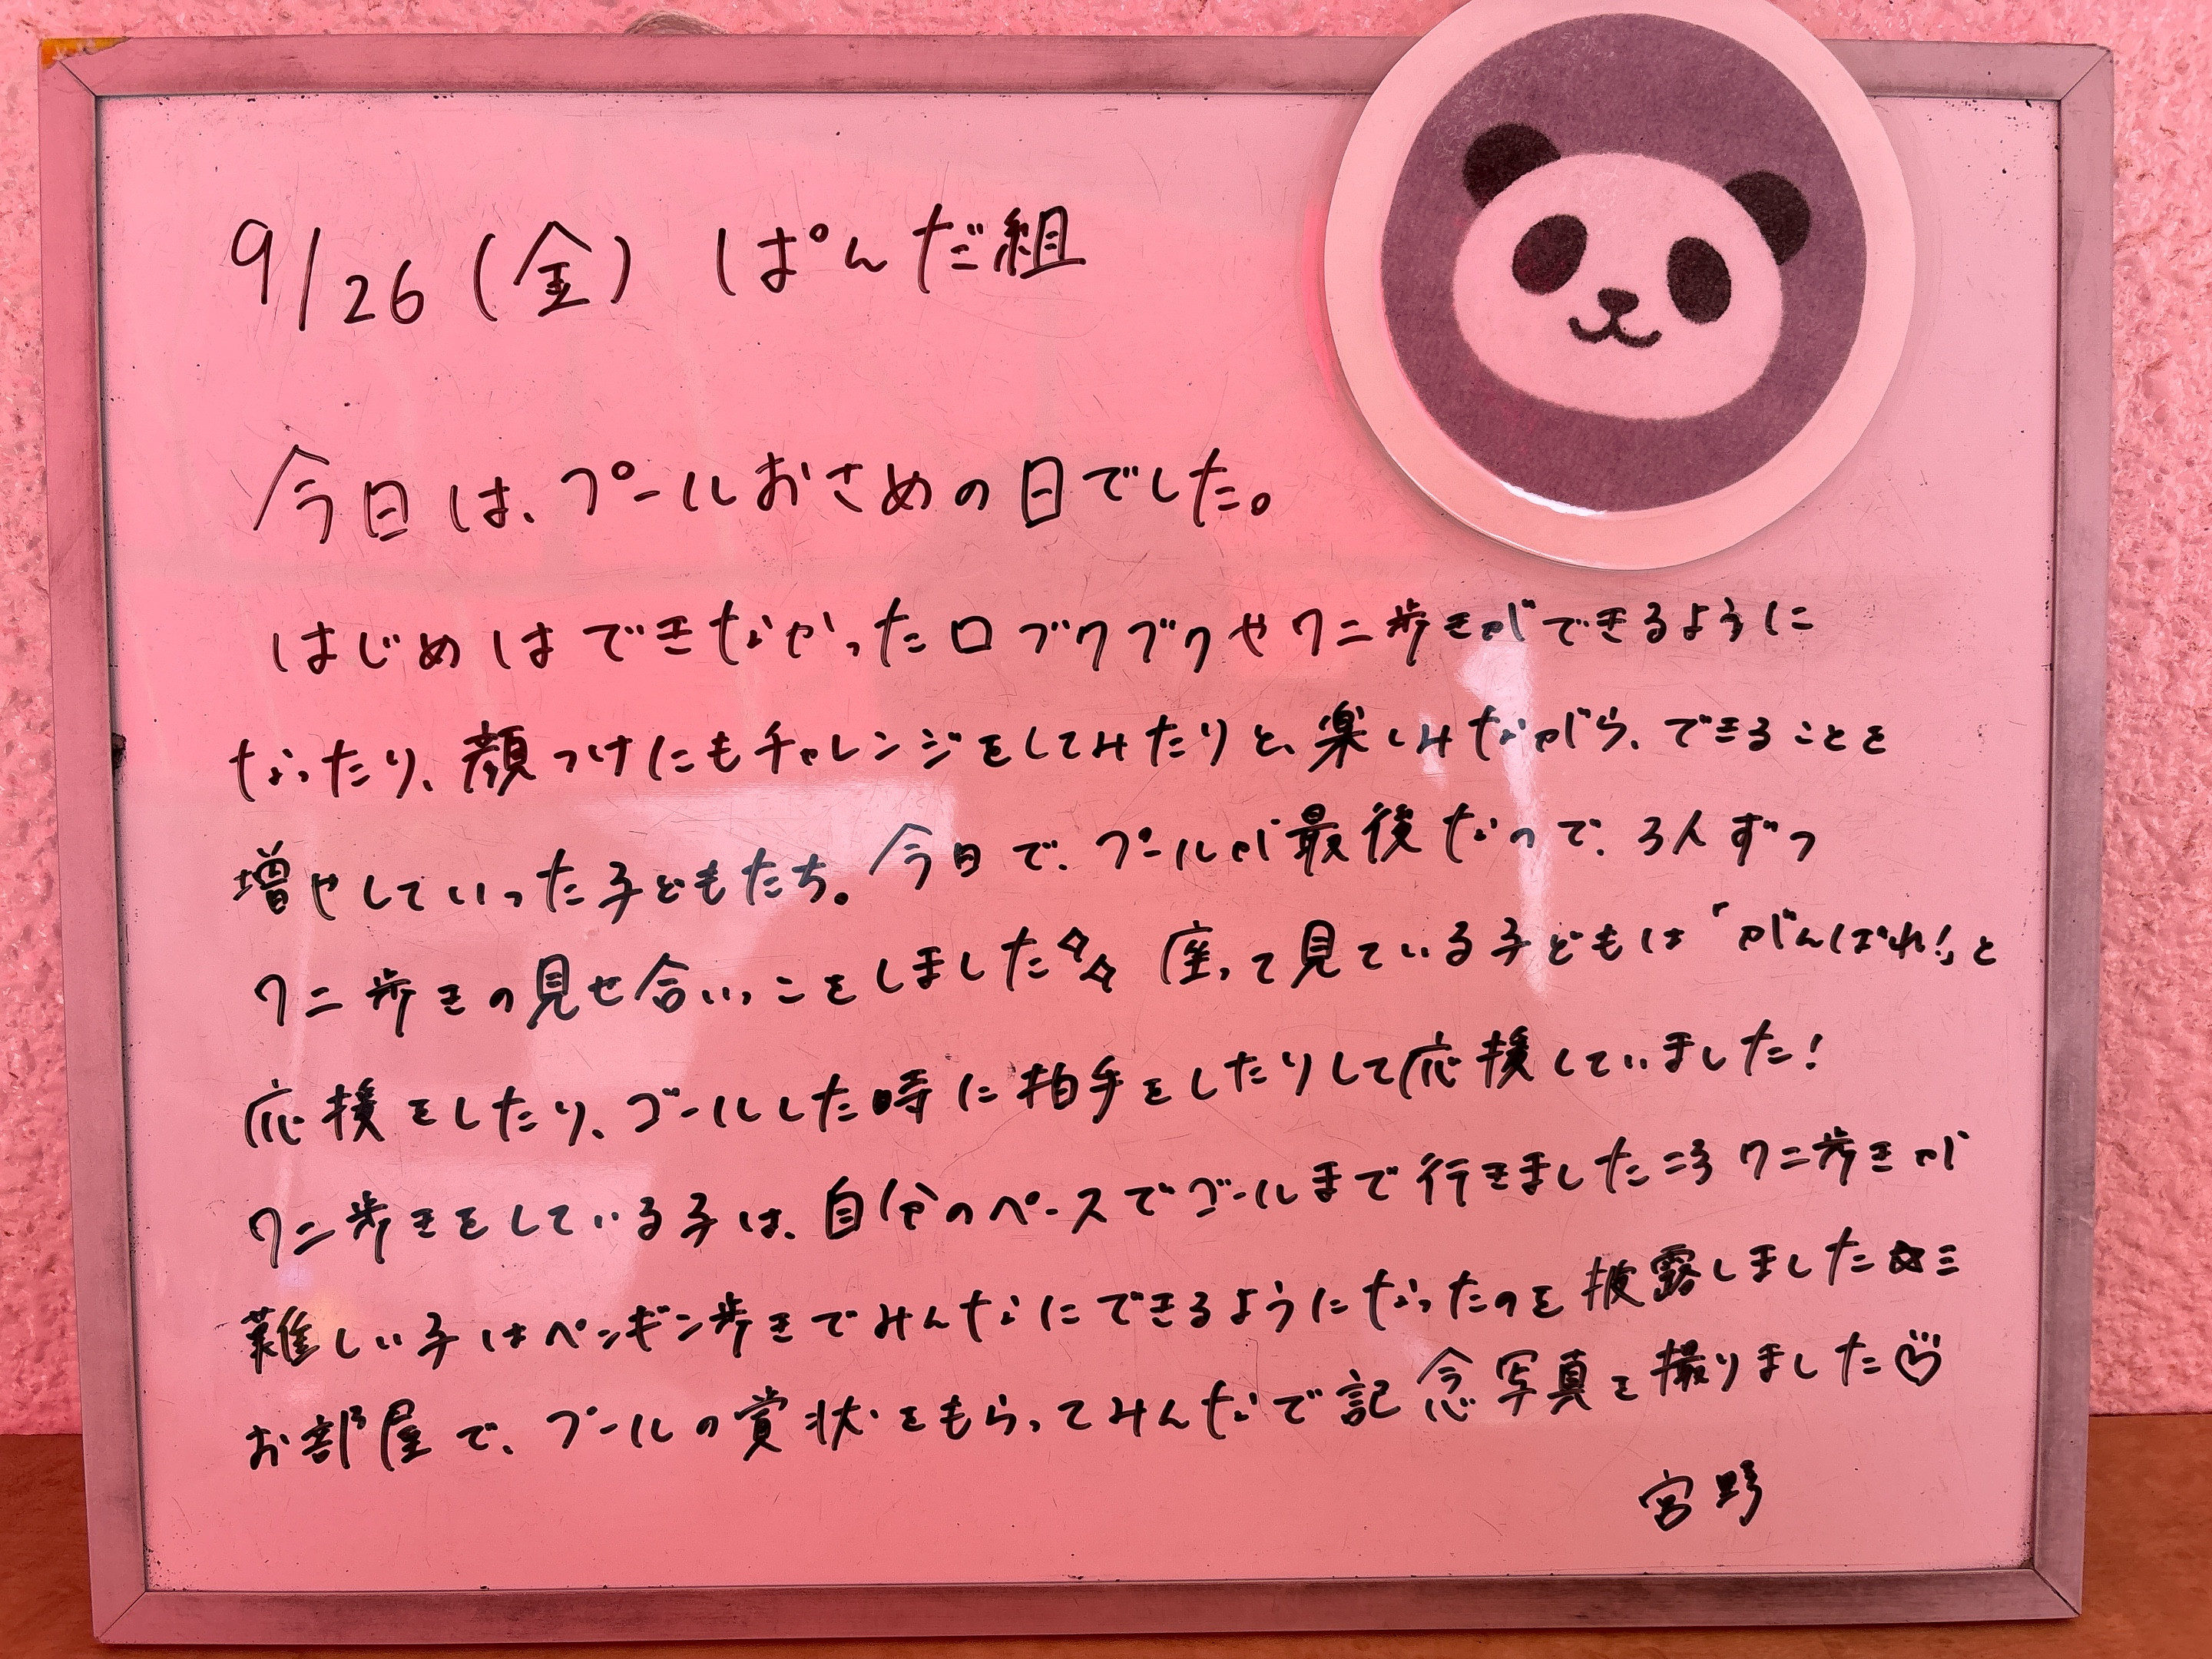 9/26(金) ぱんだ組
今日は、プールおさめの日でした。
はじめはできなかった口ブクブクやワニ歩きができるように
なったり、顔つけにもチャレンジをしてみたりと、楽しみながら、できることを
増やしていった子どもたち。今日で、プールが最後なので、3人ずつ
ワニ歩きの見せ合いっこをしました✧✧ 座って見ている子どもは「がんばれ!」と
応援をしたり、ゴールした時に拍手をしたりして応援していました!
ワニ歩きをしている子は、自分のペースでゴールまで行きました ワニ歩きが
難しい子はペンギン歩きでみんなにできるようになったのを披露しました☆ミ
お部屋で、プールの賞状をもらってみんなで記念写真を撮りました♡
宮野